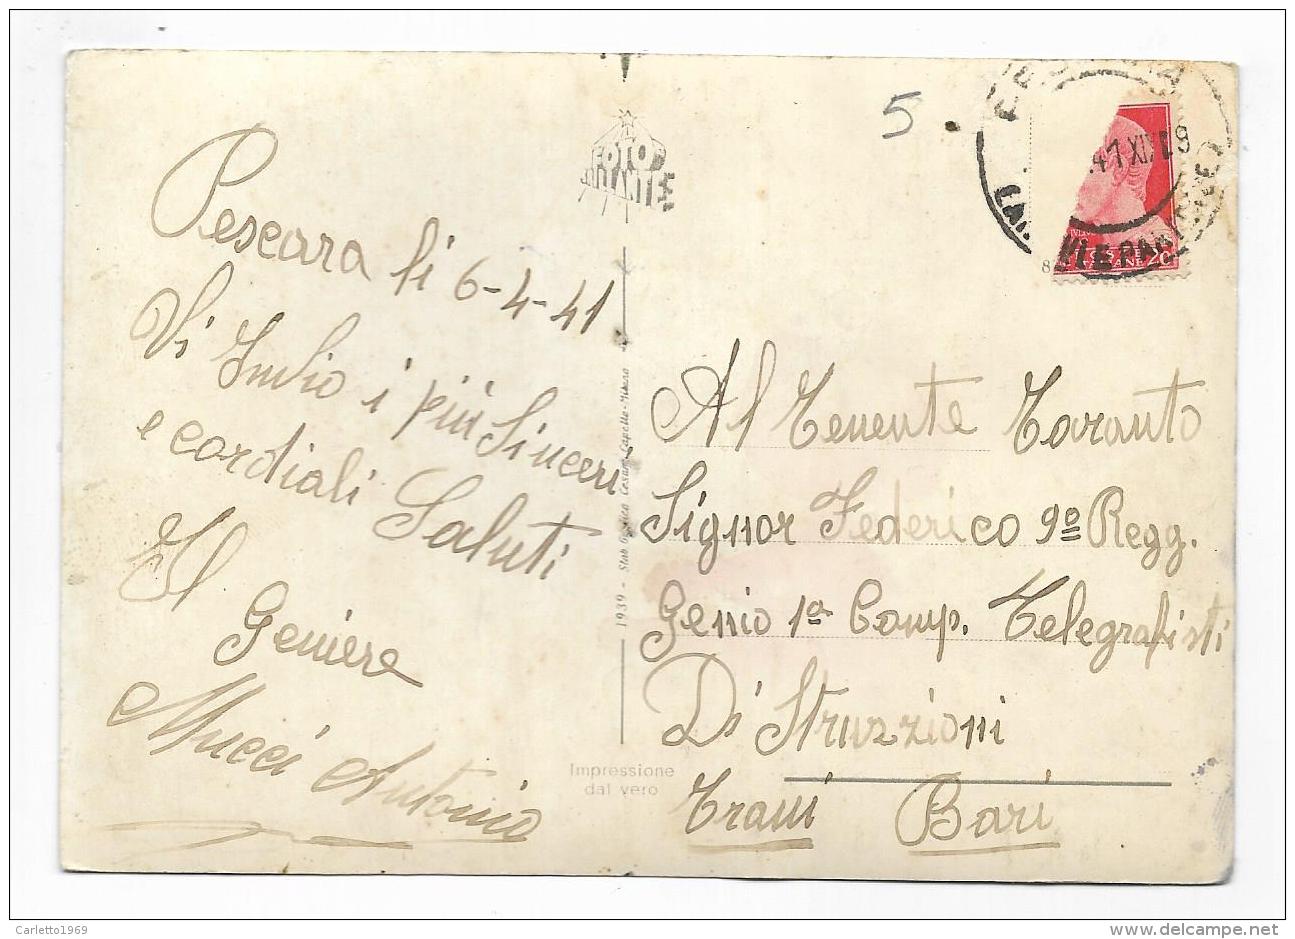 5
FOTO
Pescara li 6-4-41
Vi Invio i più Sinceri
e cordiali Saluti
Il
Geniere
Mucci Antonio
1939 - Stab. Grafico Cesare Capello - Milano
Impressione
dal vero
Al Tenente Taranto
Signor Federico 9º Regg.
Genio 1ª Comp. Telegrafisti
Di Struzzioni
Trani Bari
6 41 XIX
20
8
Carletto1969
delcampe.net